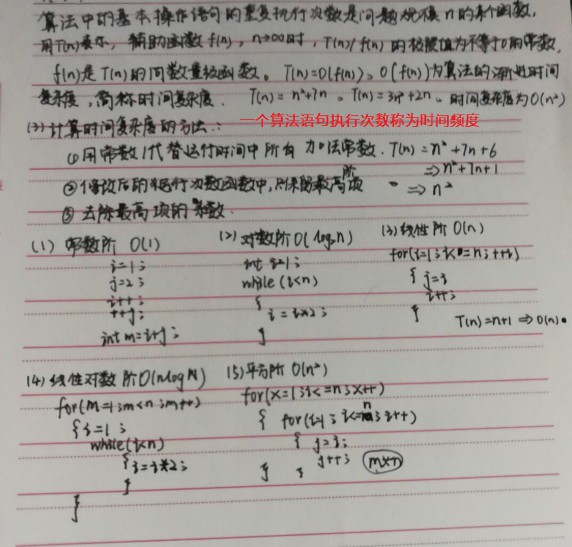 算法中的基本操作语句的重复执行次数是问题规模n的某个函数,
用T(n)表示, 辅助函数f(n), n→∞时, T(n)/f(n)的极限值为不等于0的常数,
f(n)是T(n)的同数量级函数。T(n)=O(f(n)), O(f(n))为算法的渐进时间
复杂度, 简称时间复杂度. T(n)=n²+7n 。T(n)=3n²+2n 。时间复杂度为O(n²)
(2)计算时间复杂度的方法: 一个算法语句执行次数称为时间频度
① 用常数1代替运行时间中所有加法常数. T(n)=n²+7n+6
⇒n²+7n+1
② 修改后的运行次数函数中, 只保留最高阶项 ⇒n²
③ 去除最高项的系数.
(1) 常数阶 O(1)
i=1;
j=2;
i++;
++j;
int m=i+j;
(2) 对数阶O(log₂n)
int i=1;
while(i<n)
{
i=i*2;
}
(3) 线性阶 O(n)
for(i=1;i<=n;++i)
{ j=i
i++;
}
T(n)=n+1 ⇒O(n)
(4) 线性对数阶O(nlogN)
for(m=1;m<n;m++)
{ i=1;
while(i<n)
{ i=i*2;
}
}
(5) 平方阶 O(n²)
for(x=1;i<=n;x++)
{ for(i=1;i<=n;i++)
{ j=i;
j++;
} }
m*n